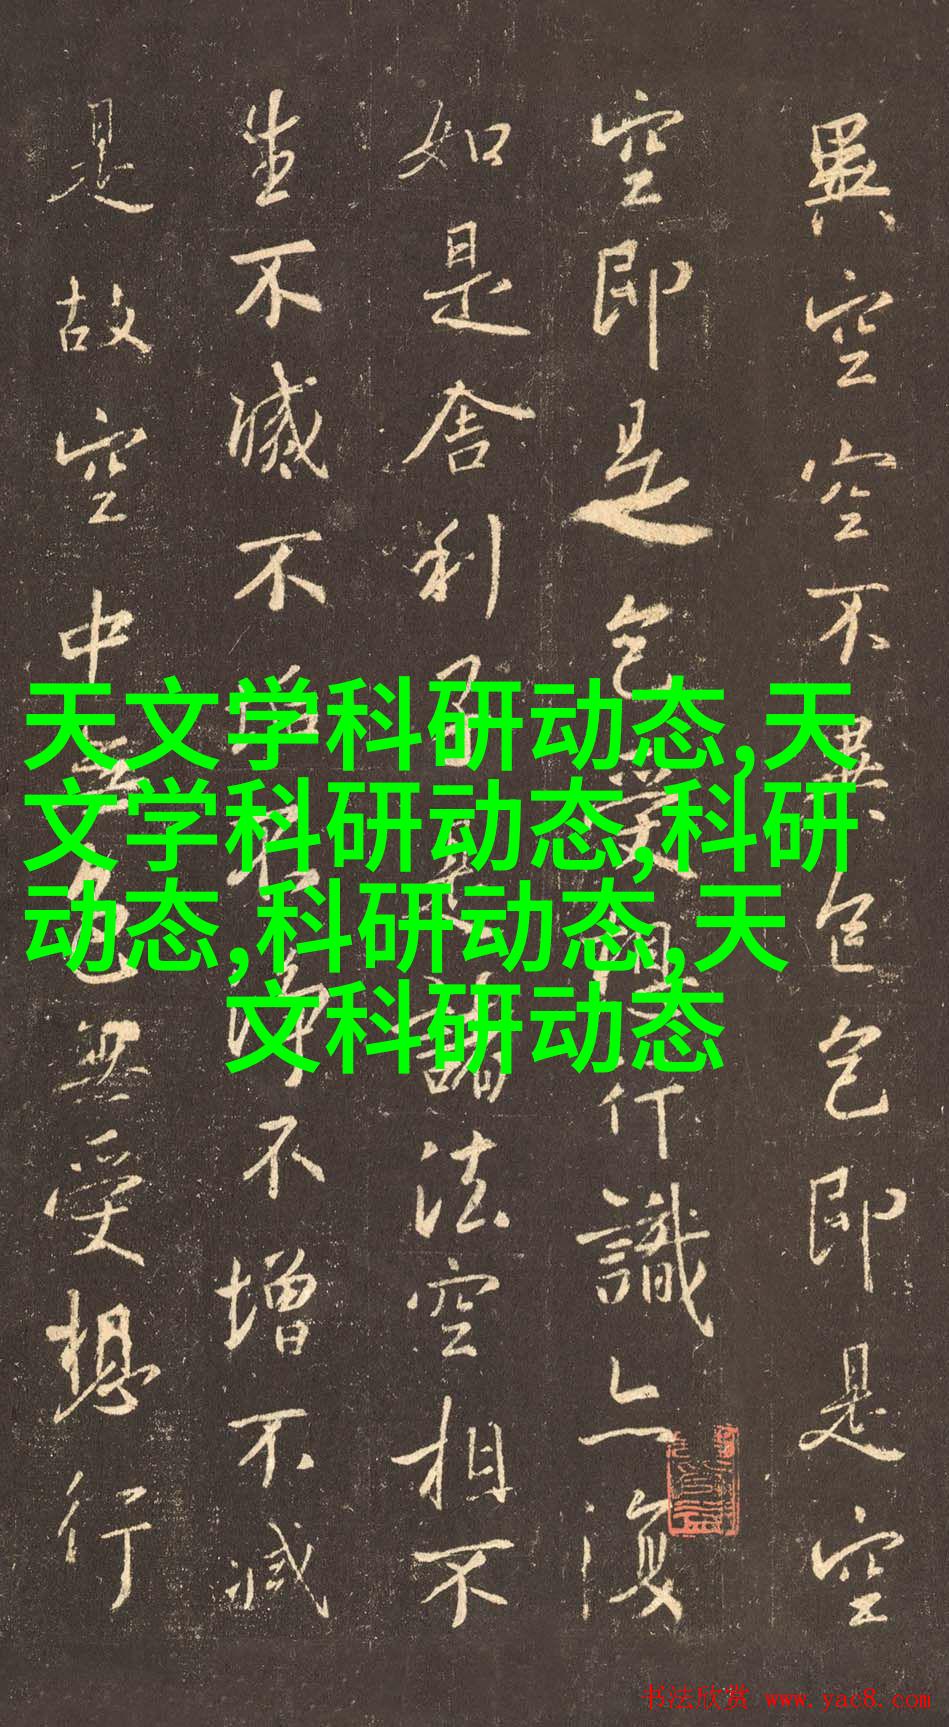 異空空不異色色即是空
空即是色受想行識亦復
如是舍利子是諸法空相不
生不滅不垢不淨不增不減
是故空中無色無受想行
天文学科研动态,天
文学科研动态,科研
动态,科研动态,天
文科研动态
书法欣赏 www.yac8.com